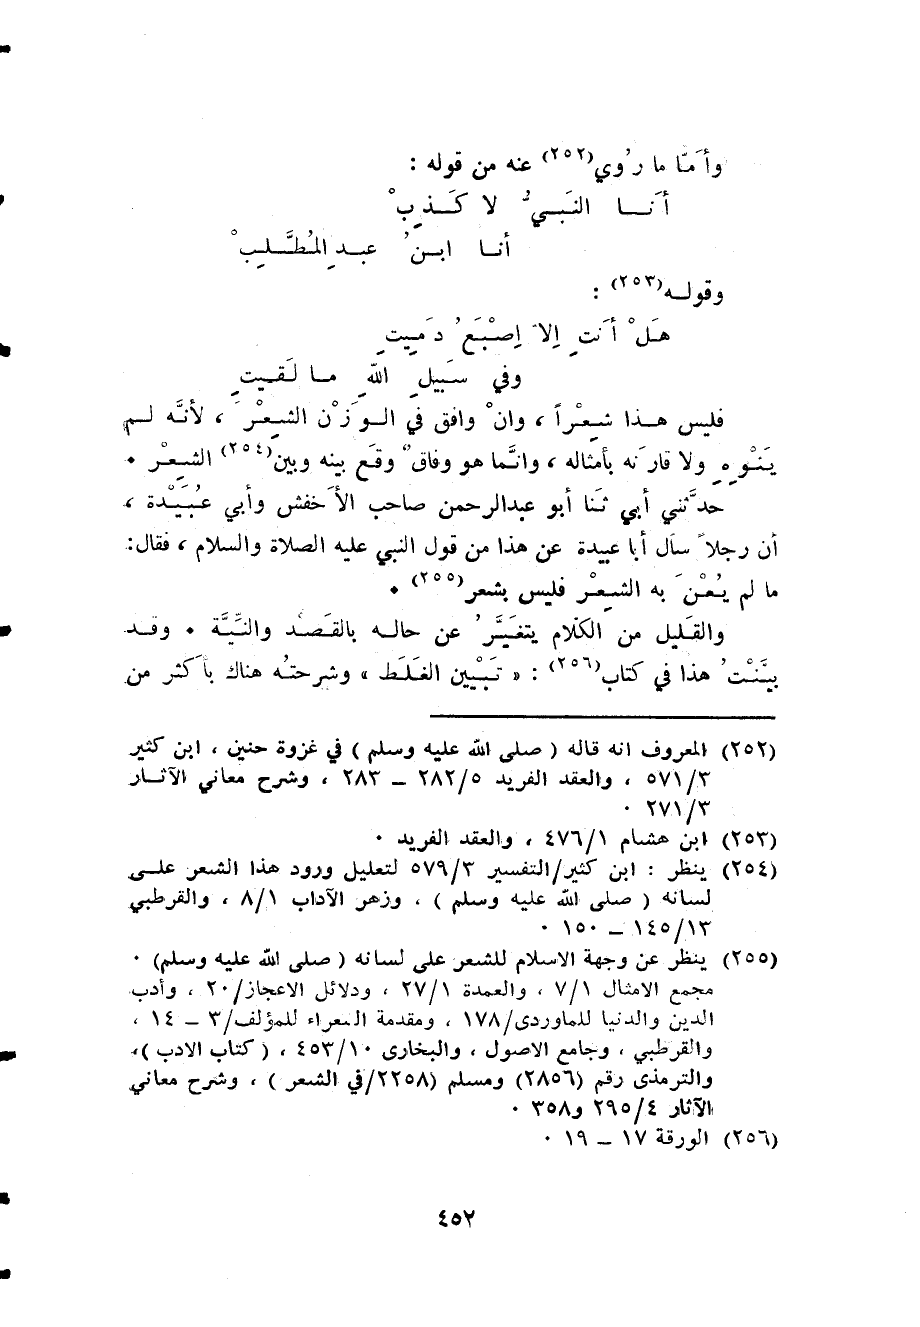 وأَمّا ما رُوي(٢٥٢) عنه من قوله :
أَنــا النَبـيُّ لا كَـذِبْ
أنـا ابـنُ عبـدِ المُطَّـلِبْ
وقولـه(٢٥٣) :
هَـلْ أَنتِ إلاّ إصْبَعٌ دَمِيتِ
وفي سَبِيلِ اللّهِ مـا لَقـيتِ
فليس هـذا شِعـْراً ، وانْ وافق في الـوَزْن الشِعـْرَ ، لأنَّه لـم
يَنْـوِهِ ولا قارَنَه بأمثاله ، وانَّما هو وفاقٌ وقَع بينه وبين(٢٥٤) الشِعـْر ٠
حدَّثني أَبي ثَنا أَبو عبدالرحمن صاحب الأَخفش وأَبي عُبَيْدة ،
أن رجلاً سأل أبا عبيدة عن هذا من قول النبي عليه الصلاة والسلام ، فقال:
ما لم يُعْنَ به الشِعـْر فليس بشعر(٢٥٥) ٠
والقَليل من الكَلام يتغَيَّرُ عن حالـه بالقَصْد والنِيَّة ٠ وقـد
بيَّنْتُ هذا في كتاب(٢٥٦) : « تَبْيين الغَلَط » وشرحتُه هناك بأَكثر من
(٢٥٢) المعروف انه قاله ( صلى الله عليه وسلم ) في غزوة حنين ، ابن كثير
٥٧١/٣ ، والعقد الفريد ٢٨٢/٥ ــ ٢٨٣ ، وشرح معاني الآثـار
٢٧١/٣ ٠
(٢٥٣) ابن هشام ٤٧٦/١ ، والعقد الفريد ٠
(٢٥٤) ينظر : ابن كثير/التفسير ٥٧٩/٣ لتعليل ورود هذا الشعر علـى
لسانه ( صلى الله عليه وسلم ) ، وزهر الآداب ٨/١ ، والقرطبي
١٤٥/١٣ ــ ١٥٠ ٠
(٢٥٥) ينظر عن وجهة الاسلام للشعر على لسانه ( صلى الله عليه وسلم) ٠
مجمع الامثال ٧/١ ، والعمدة ٢٧/١ ، ودلائل الاعجاز/٢٠ ، وأدب
الدين والدنيا للماوردى/١٧٨ ، ومقدمة الشعراء للمؤلف/٣ ــ ١٤ ،
والقرطبي ، وجامع الاصول ، والبخارى ٤٥٣/١٠ ، (كتاب الادب)،
والترمذى رقم (٢٨٥٦) ومسلم (٢٢٥٨/في الشعر ) ، وشرح معاني
الآثار ٢٩٥/٤ و٣٥٨ ٠
(٢٥٦) الورقة ١٧ ــ ١٩ ٠
٤٥٢